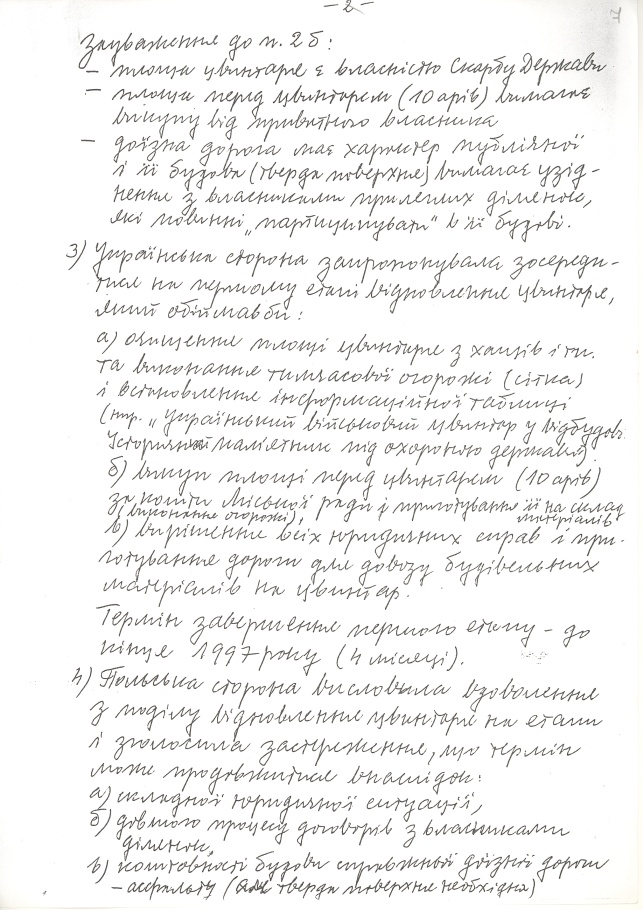 – 2 –
7
Зауваження до п. 2б:
– площа цвинтаря є власністю Скарбу Держави
– площа перед цвинтарем (10 арів) вимагає
викупу від приватного власника
– доїзна дорога має характер публічної
і її будова (тверда поверхня) вимагає узгід-
нення з власниками прилеглих ділянок,
які повинні „партиципувати" в її будові.
3) Українська сторона запропонувала зосереди-
тися на першому етапі відновлення цвинтаря,
який обіймав би:
а) очищення площі цвинтаря з хащів і т.п.
та виконання тимчасової огорожі (сітка)
і встановлення інформаційної таблиці
(нпр. „Український військовий цвинтар у відбудові.
Історичний пам'ятник під охороною держави")
б) викуп площі перед цвинтарем (10 арів)
за кошти Міської ради і приготування її на склад
матеріалів
(виконання огорожі),
в) вирішення всіх юридичних справ і при-
готування дороги для довозу будівельних
матеріалів на цвинтар.
Термін завершення першого етапу – до
кінця 1997 року (4 місяці).
4) Польська сторона висловила вдоволення
з поділу відновлення цвинтаря на етапи
і зголосила застереження, що термін
може продовжитися внаслідок:
а) складної юридичної ситуації,
б) довгого процесу договорів з власниками
ділянок,
в) коштовності будови справжньої доїзної дороги
– асфальту (але тверда поверхня необхідна)